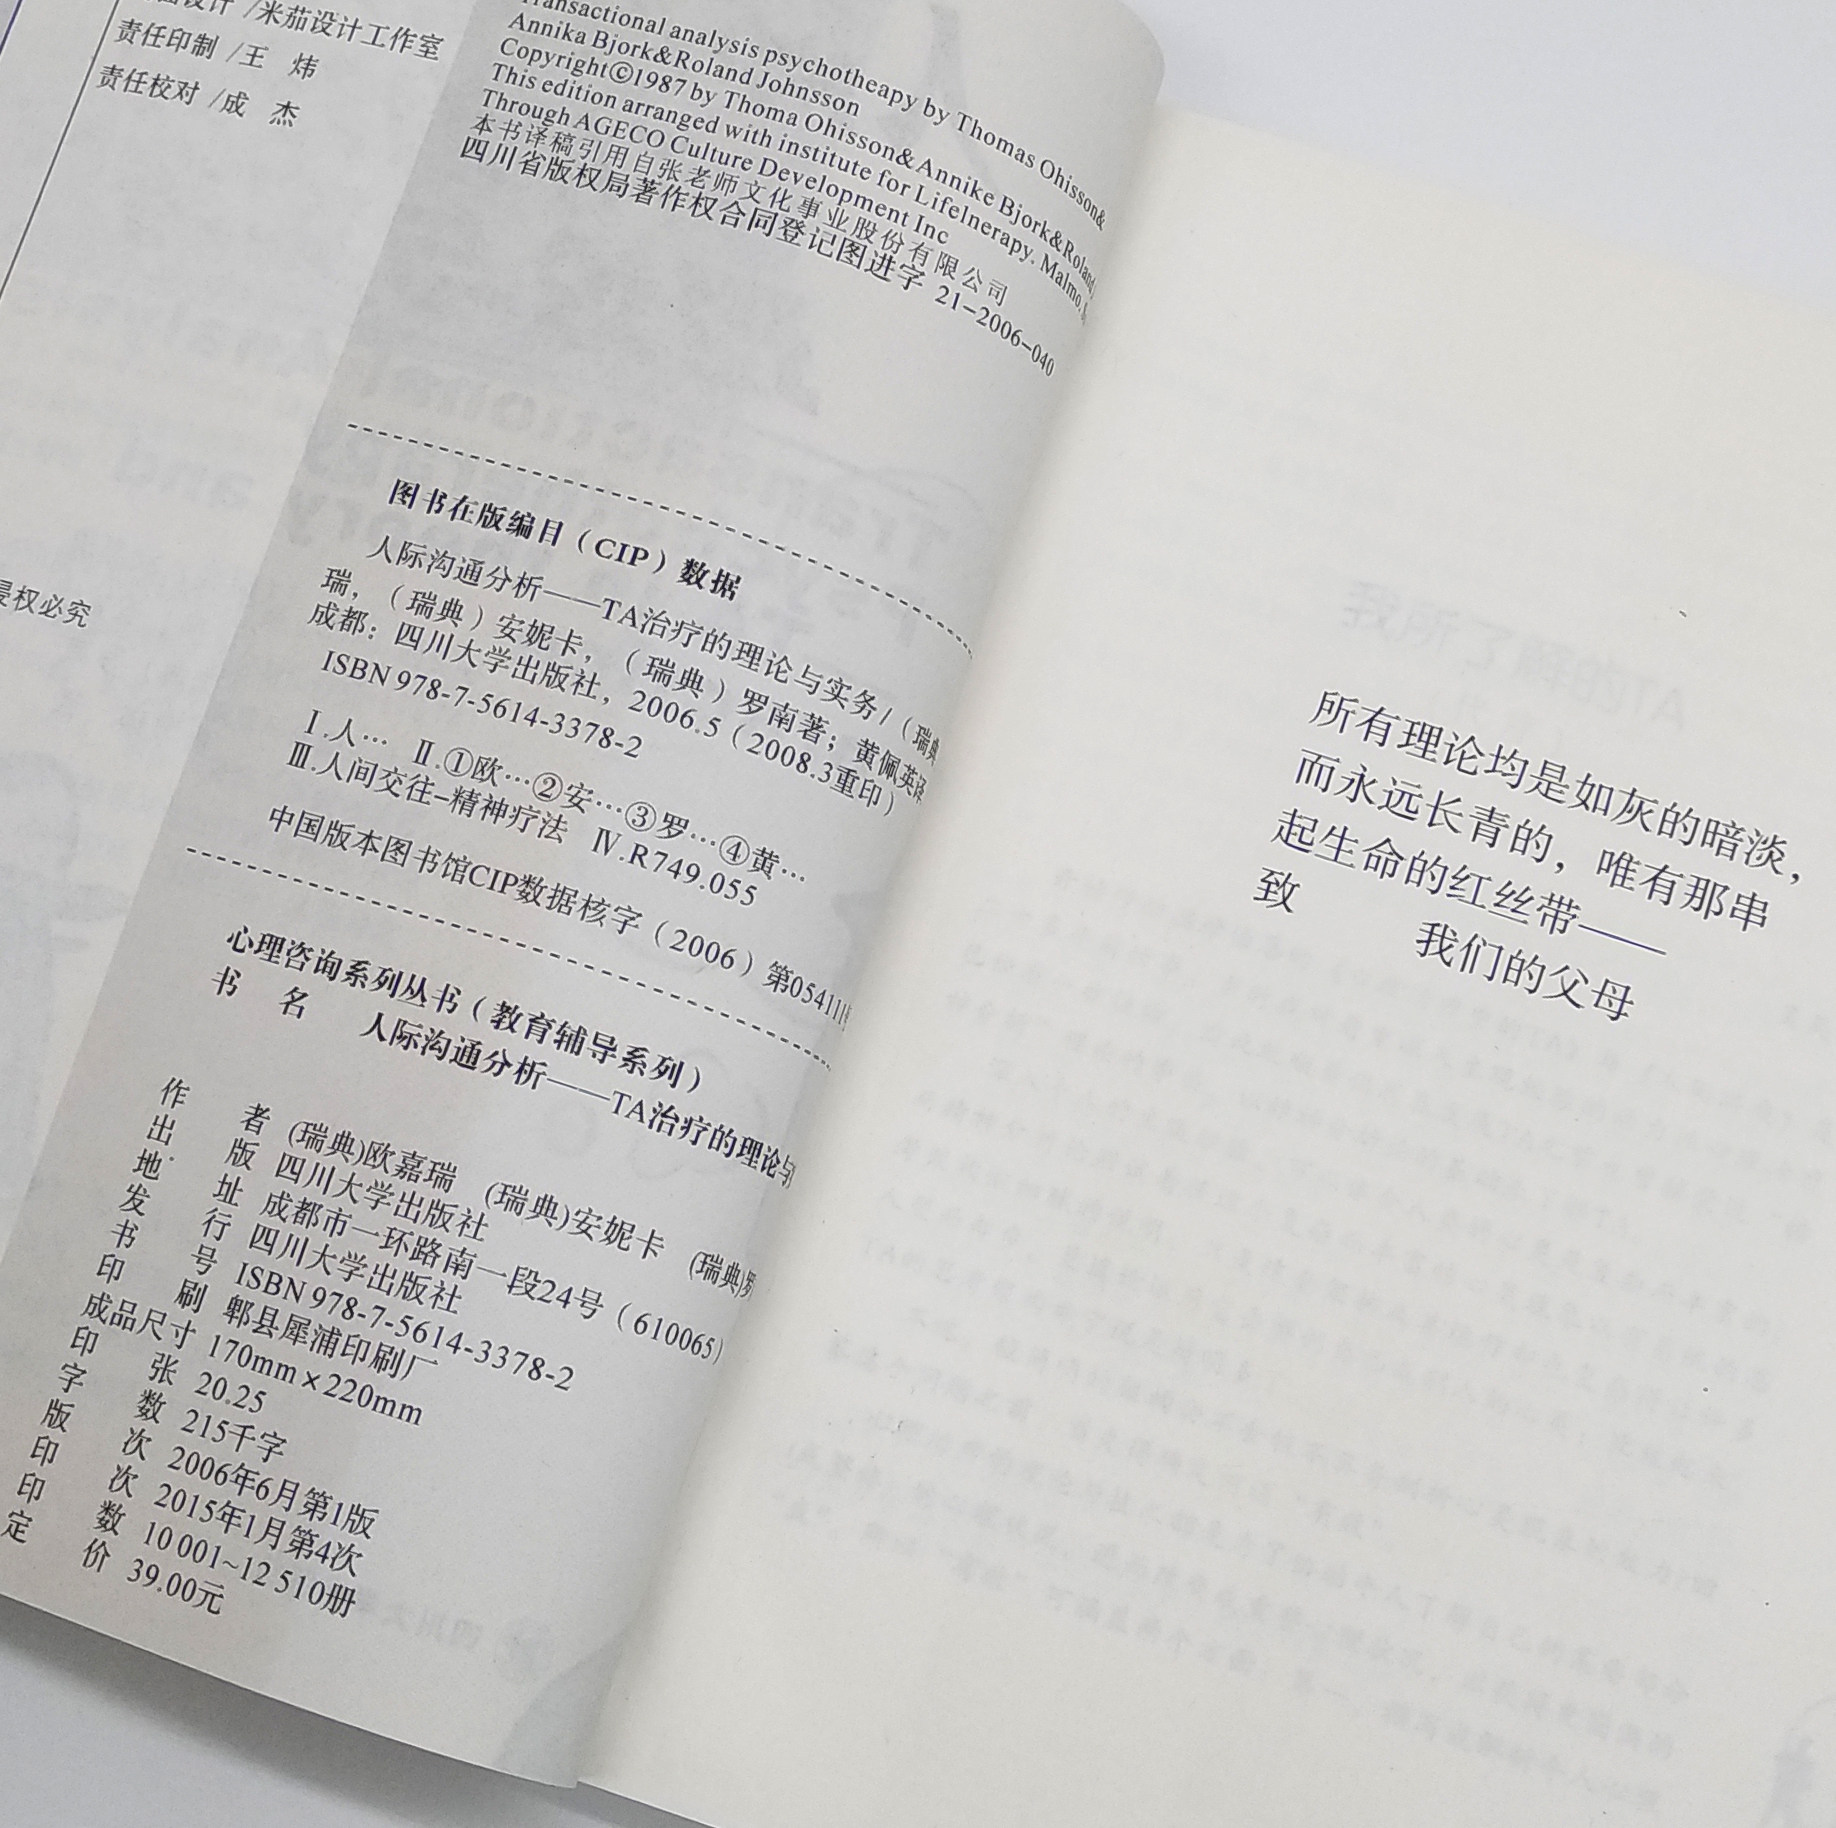 设计 /米茄设计工作室
责任印制 /王 炜
责任校对 /成 杰
侵权必究
Transactional analysis psychotheapy by Thomas Ohisson&
Annika Bjork&Roland Johnsson
Copyright©1987 by Thoma Ohisson& Annike Bjork&Roland
This edition arranged with institute for Lifelnerapy. Malmo,
Through AGECO Culture Development Inc
本书译稿引用自张老师文化事业股份有限公司
四川省版权局著作权合同登记图进字 21-2006-040
图书在版编目（CIP）数据
人际沟通分析——TA治疗的理论与实务/（瑞典
瑞，（瑞典）安妮卡，（瑞典）罗南著；黄佩英译
成都：四川大学出版社，2006.5（2008.3重印）
ISBN 978-7-5614-3378-2
Ⅰ.人… Ⅱ.①欧…②安…③罗…④黄…
Ⅲ.人间交往-精神疗法 Ⅳ.R749.055
中国版本图书馆CIP数据核字（2006）第054111
心理咨询系列丛书（教育辅导系列）
书 名 人际沟通分析——TA治疗的理论与
作 者 (瑞典)欧嘉瑞 (瑞典)安妮卡 (瑞典)罗
出 版 四川大学出版社
地 址 成都市一环路南一段24号（610065）
发 行 四川大学出版社
书 号 ISBN 978-7-5614-3378-2
印 刷 郫县犀浦印刷厂
成品尺寸 170mm×220mm
印 张 20.25
字 数 215千字
版 次 2006年6月第1版
印 次 2015年1月第4次
印 数 10 001~12 510册
定 价 39.00元
所有理论均是如灰的暗淡，
而永远长青的，唯有那串
起生命的红丝带——
致 我们的父母